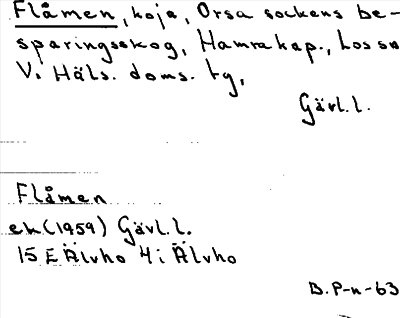 Flåmen, koja, Orsa sockens be-
sparingsskog, Hamra kap., Los sn
V. Häls. doms. tg,
Gävl. l.
Flåmen
ek (1959) Gävl. l.
15 E Älvho 4 i Älvho
B. P-n-63